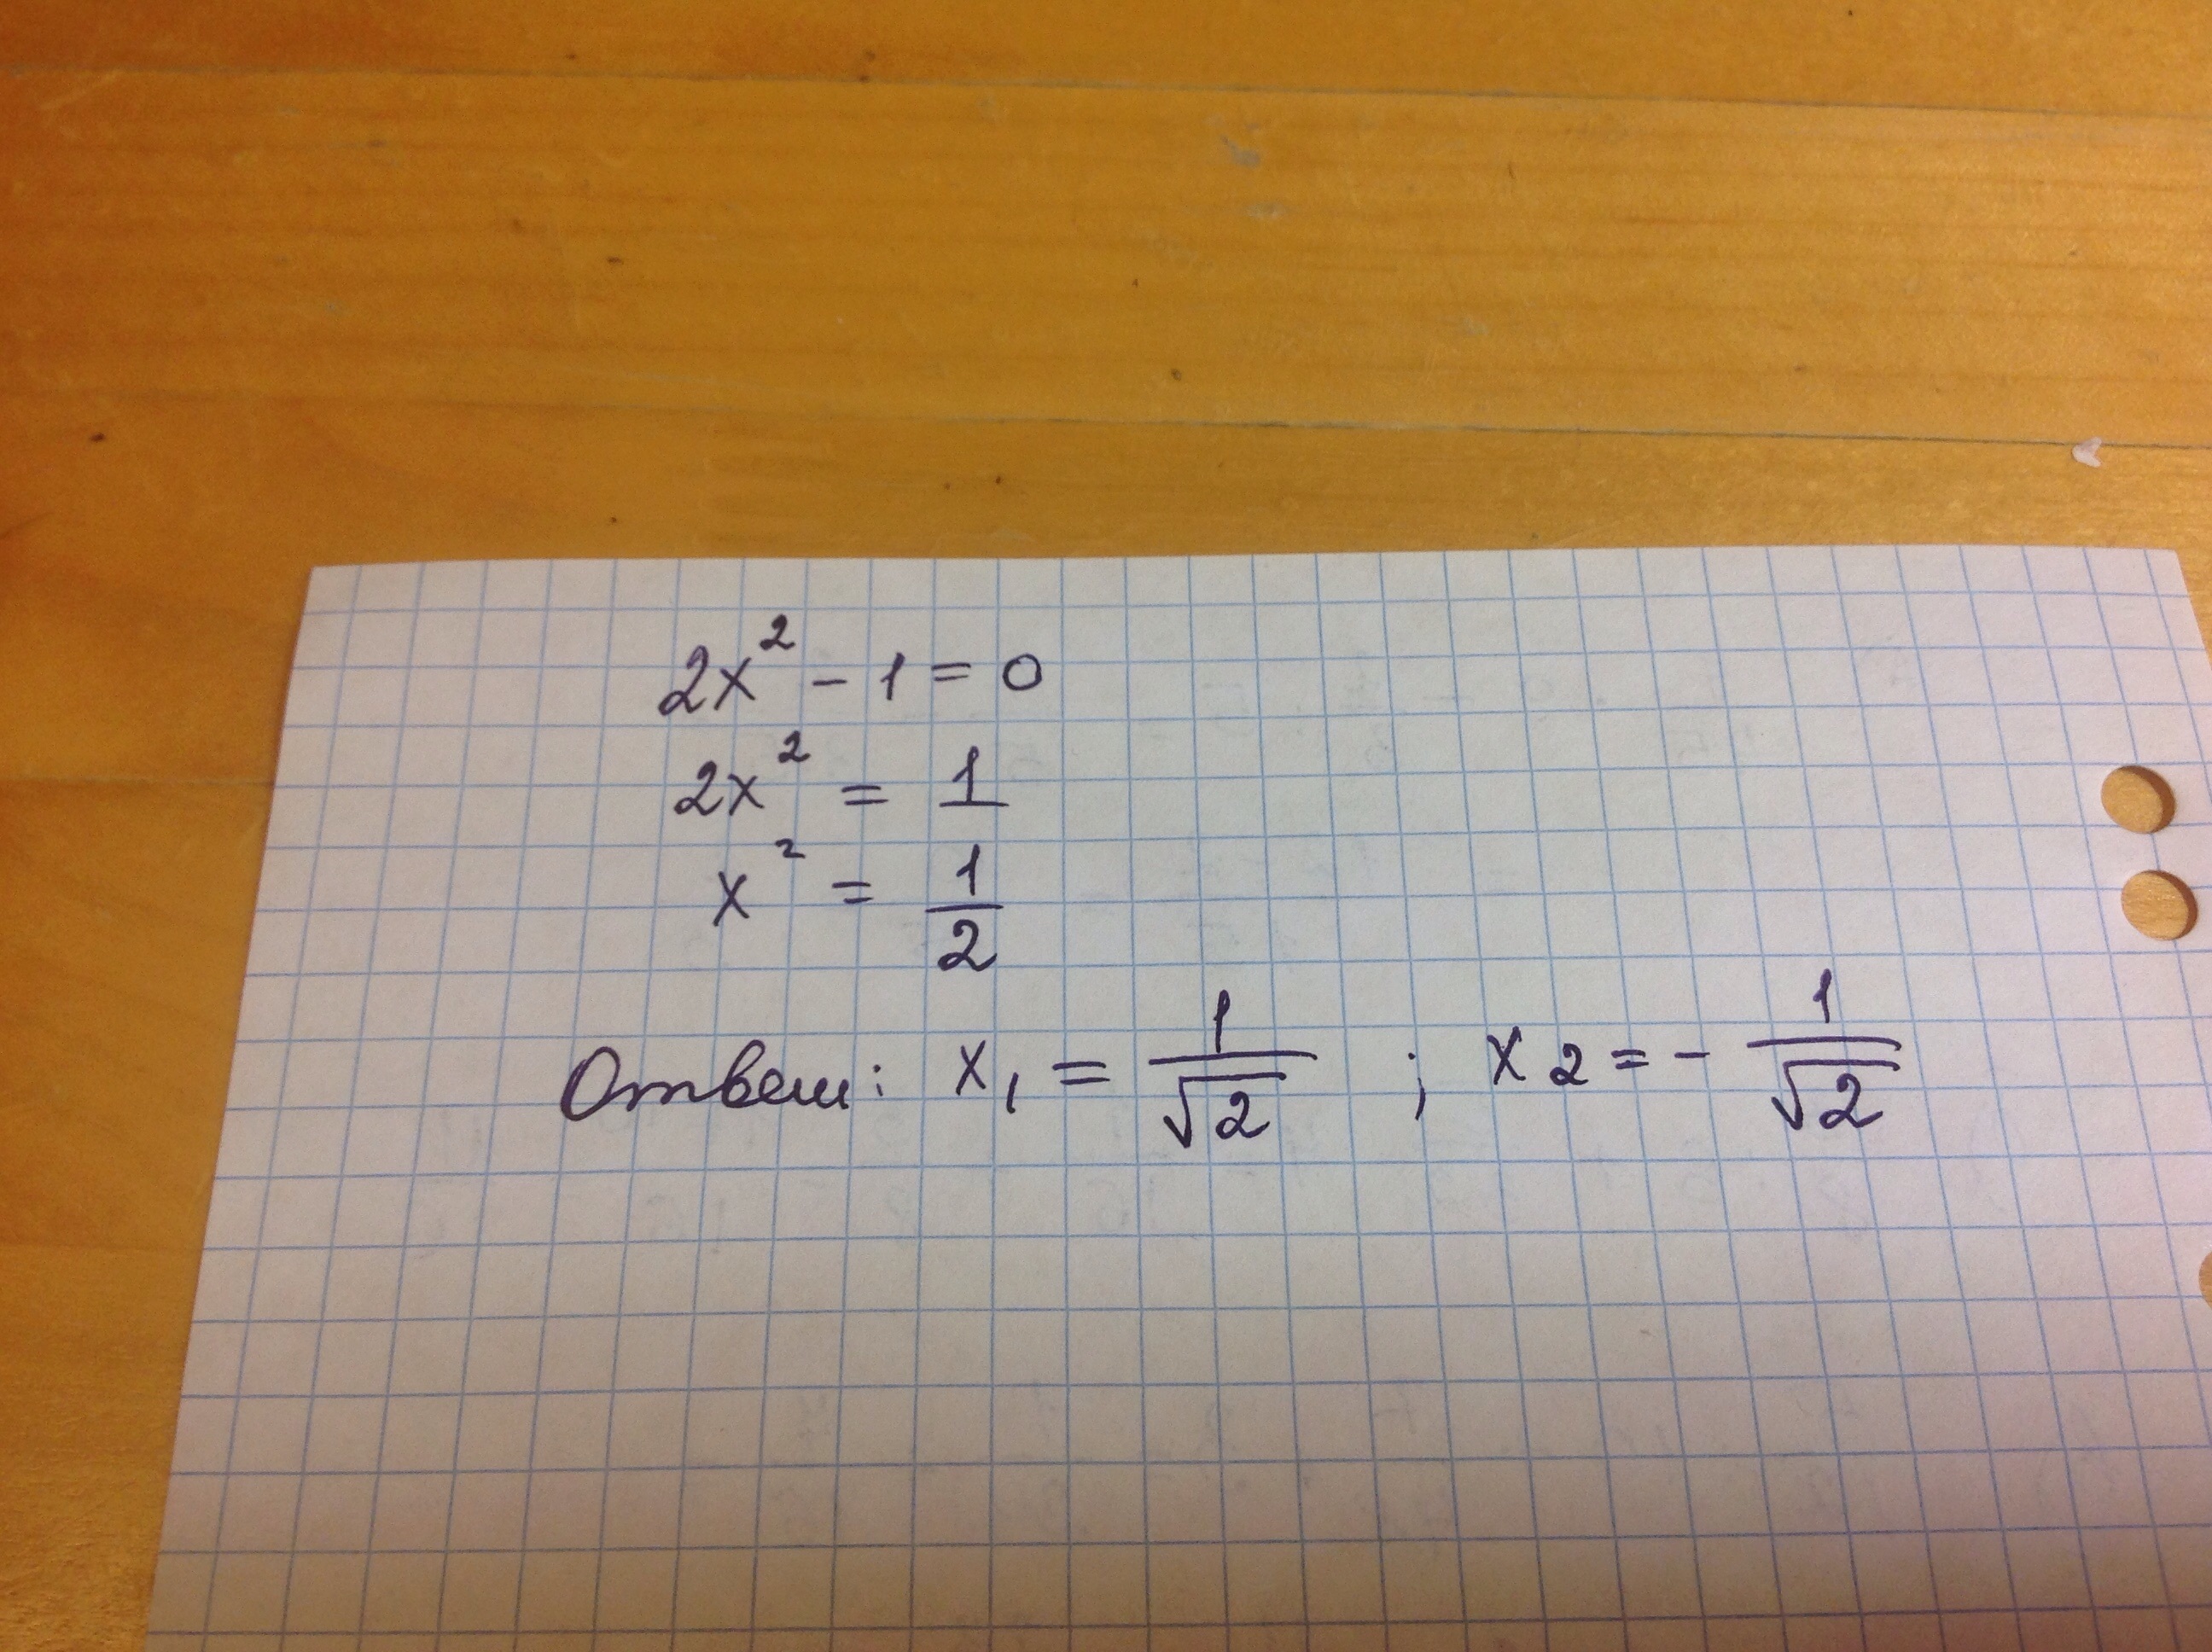 2x² - 1 = 0
2x² = 1
x² = 1/2
Ответ: x₁ = 1/√2 ; x₂ = - 1/√2